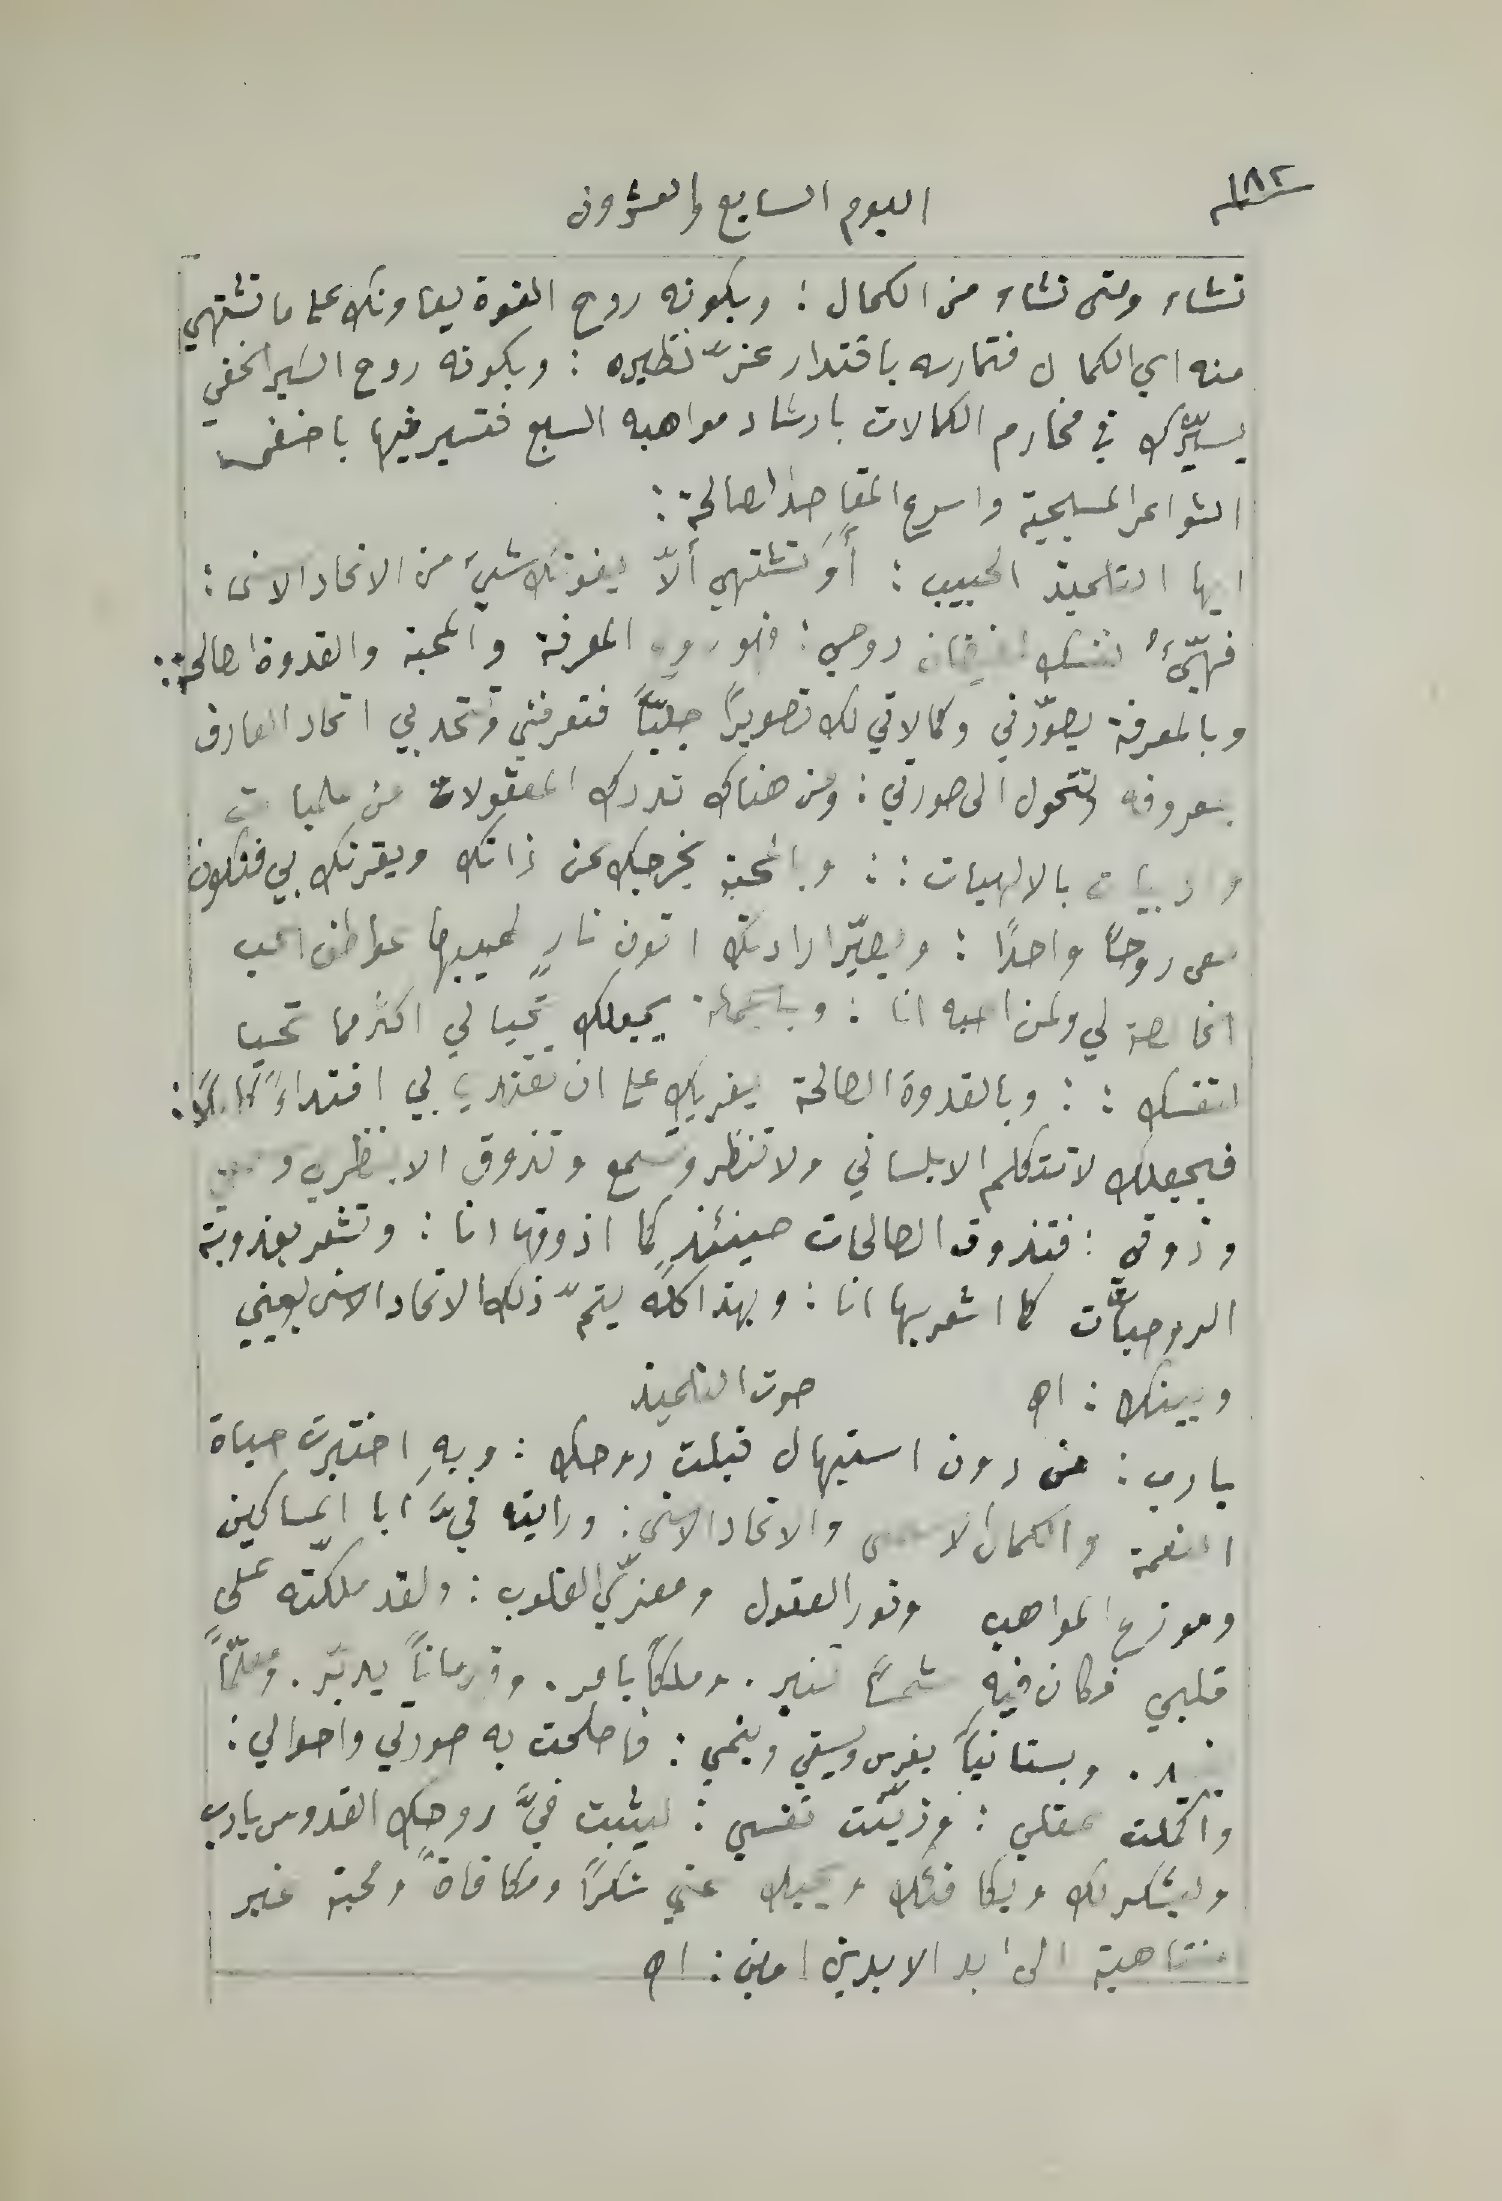 ١٨٢
اليوم السابع والعشرون
تشاء ومتى تشاء من الكمال : وبكونه روح القوة يعاونك على ما تشتهي
منه اي الكمال فتمارسه باقتدار عزّ نظيره : وبكونه روح السير الخفي
يسيّرك في مخارم الكمالات بارشاد مواهبه السبع فتسير فيها باخفى
الشواعر المسيحية واسرع المقاصد الصالحة :
ايها التلميذ الحبيب : أَوَ تشتهي ألاّ يفوتك شيء من الاتحاد الاسنى :
فهيّئ نفسك روحي : فهو روح المعرفة والمحبة والقدوة الصالحة :
وبالمعرفة يصوّرني وكمالاتي لك تصويرًا جليًّا فتعرفني وتتحد بي اتحاد العارف
بمعروفه وتتحول الى صورتي : ومن هناك تدرك المعقولات من
بالالهيات : : وبالمحبة يخرجك عن ذاتك ويقرنك بي فتكون
معي روحًا واحدًا : ويصيّر ارادتك اتون نارٍ لهيبها عواطف الحب
الخالصة لي ولمن احبه انا : وبالجملة يجعلك تحيا لي اكثر مما تحيا
لنفسك : : وبالقدوة الصالحة يغريك على ان تقتدي بي اقتداءً كاملًا :
فيجعلك لا تتكلم الا بلساني ولا تنظر وتسمع وتذوق الا بنظري
وذوقي : فتذوق الصالحات حينئذٍ كما اذوقها انا : وتشعر بعذوبة
الروحيّات كما اشعر بها انا : وبهذا كله يتمّ ذلك الاتحاد الاسنى بيني
وبينك : اه
صوت التلميذ
يا رب : من دون استيهال قبلت روحك : وبهِ اختبرت حياة
النعمة والكمال والاتحاد الاسنى : ورايته فيَّ ابا المساكين
وموزع المواهب ونور العقول ومعزّي القلوب : ولقد ملّكته على
قلبي فكان فيه شمسًا تنير . وملكًا يامر . وقرمانًا يدبّر . ومعلّمًا
وبستانيًا يغرس ويسقي وينمي : فاصلحت به صورتي واحوالي :
واكملت عقلي : وزيّنت نفسي : ليثبت فيَّ روحك القدوس يا رب
وليشكرنك ويكافئك ويحبك عني شكرًا ومكافاةً ومحبة غير
متناهية الى ابد الابدين امين : اه